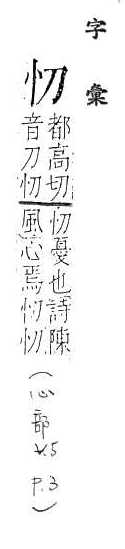 字彙
忉
都高切
音刀忉
忉憂也詩陳
風心焉忉忉
(心部
V.5
P.3)